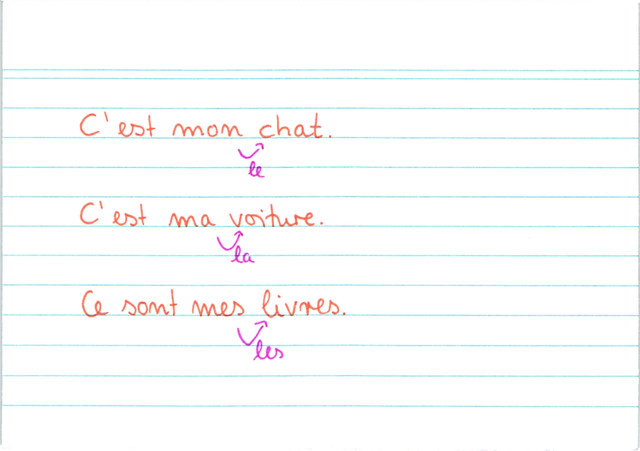 C'est mon chat.
le
C'est ma voiture.
la
Ce sont mes livres.
les